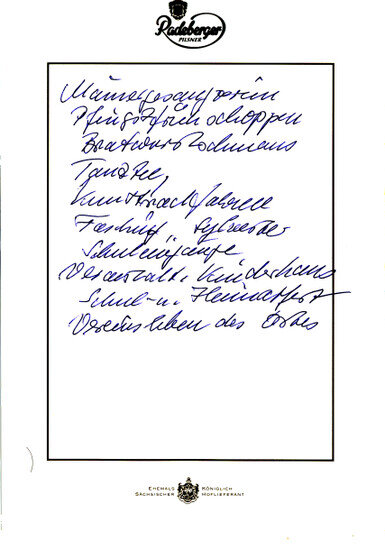 Radeberger
PILSNER
Männergesangverein
Pfingstfrühschoppen
Bratwurstschmaus
Tanztee,
Fasching, Sylvester
Schuleingänge
Veranstalt. Kinderhaus
Schul- u. Heimatfest
Vereinsleben des Ortes
EHEMALS KÖNIGLICH
SÄCHSISCHER HOFLIEFERANT